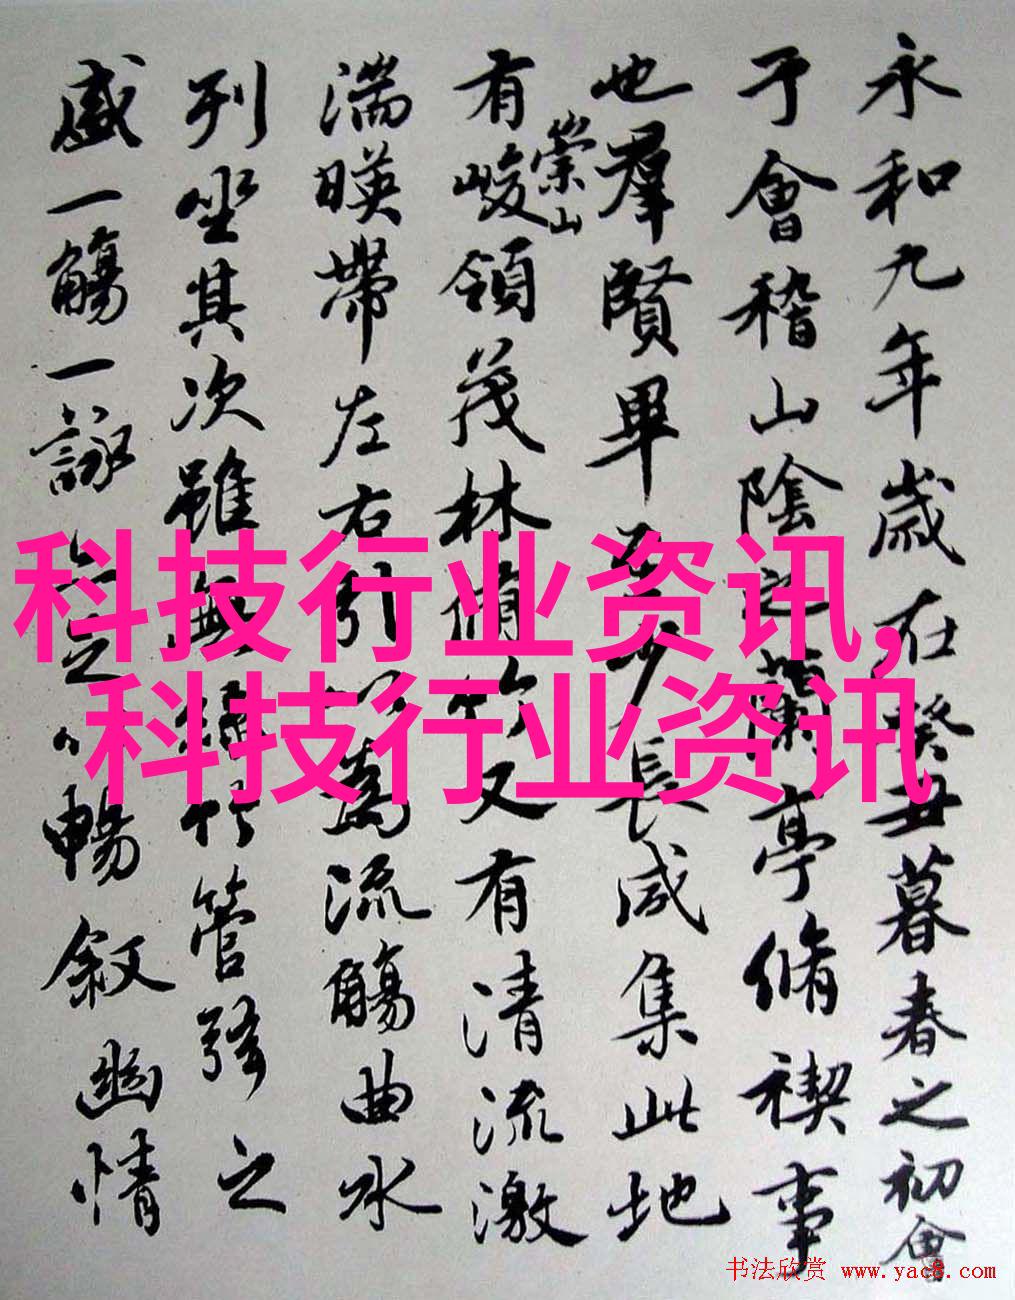 永和九年歲在癸丑暮春之初會
于會稽山陰之蘭亭脩禊事
也羣賢畢至少長咸集此地
有崇山峻領茂林脩竹又有清流激
湍暎帶左右引以為流觴曲水
列坐其次雖無絲竹管弦之
盛一觴一詠亦足以暢敘幽情
科技行业资讯,
科技行业资讯
书法欣赏 www.yac8.com